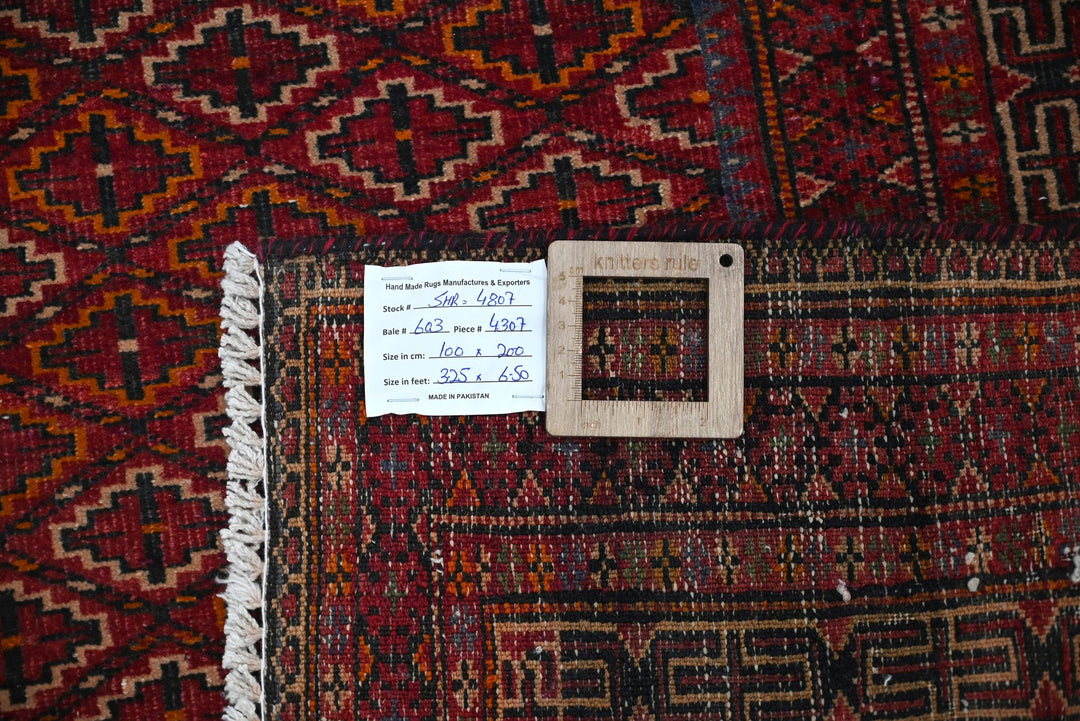 Hand Made Rugs Manufactures & Exporters
Stock # SHR = 4807
Bale # 603 Piece # 4307
Size in cm: 100 x 200
Size in feet: 3.25 x 6.50
MADE IN PAKISTAN
knitters rule
cm
5
4
3
2
1
inch 1 2